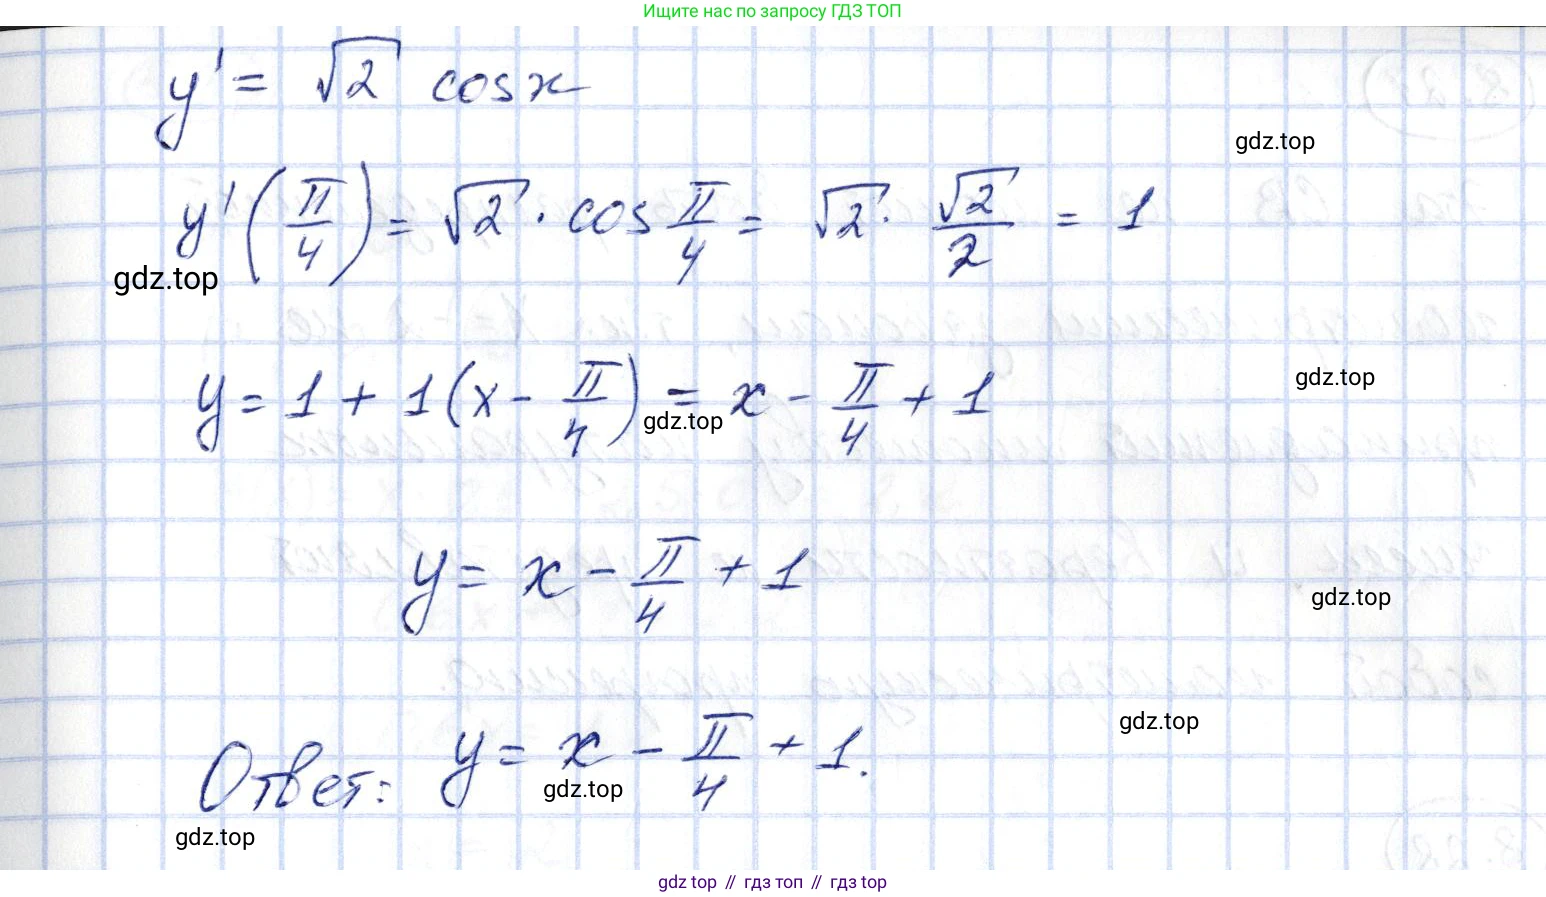 Ищите нас по запросу ГДЗ ТОП
y' = √2 cos x
gdz.top
y'(π/4) = √2 · cos π/4 = √2 · √2/2 = 1
gdz.top
gdz.top
y = 1 + 1(x - π/4) = x - π/4 + 1
gdz.top
y = x - π/4 + 1
gdz.top
gdz.top
Ответ: y = x - π/4 + 1.
gdz.top
gdz.top
gdz top // гдз топ // gdz top